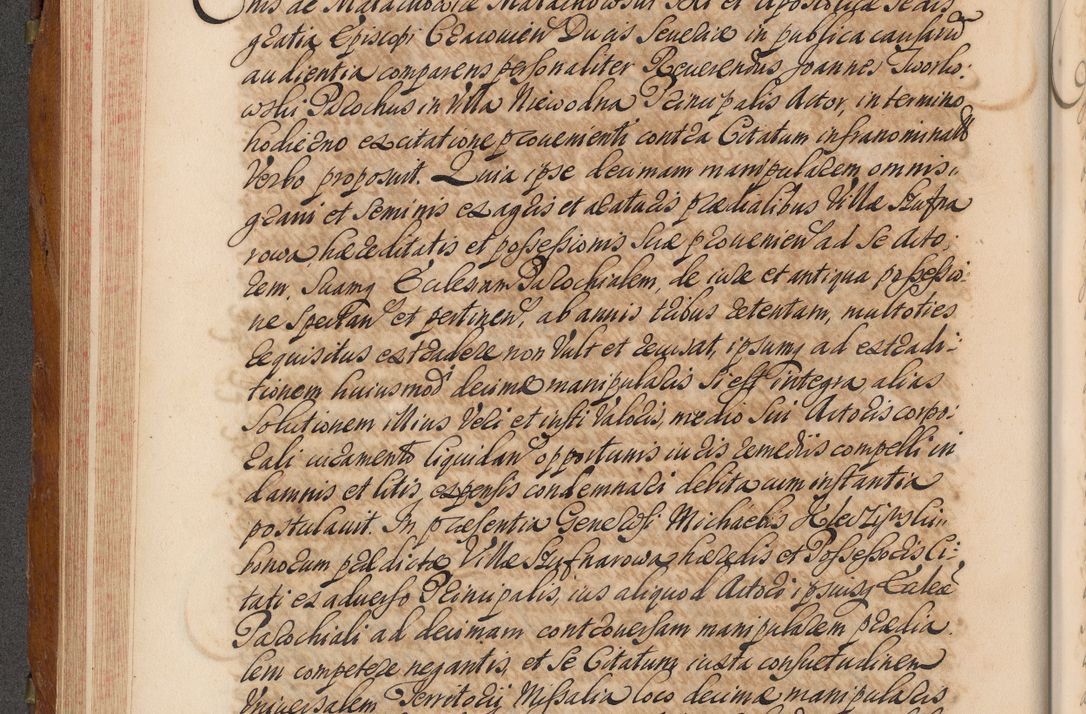 nis de Małachowice Małachowski Dei et Apostolicæ Sedis
gratia Episcopi Cracovien Ducis Severiæ in publica causarũ
audientia comparens personaliter Reverendus Joannes Tworko:
wski Parochus in Villa Niewodna Principalis Actor, in termino
hodierno ex citatione provenienti contra Citatum infranominatũ
Verbo proposuit. Quia ipse decimam manipularem omnis
grani et Seminis ex agris et araturis prædialibus Villæ Szufna
rowa, hæreditatis et possessionis suæ provenien ad Se Acto,
rem, Suamq Ecclesiam Parochialem, de iure et antiqua possessio:
ne Spectan et pertinen, ab annis tribus retentam, multoties
requisitus extradere non Vult et recusat, ipsumq ad extradi:
tionem huiusmodi decimæ manipularis si est integra alias
Solutionem illius Veri et iusti Valoris, medio Sui Actoris corpo:
rali iuramento liquidan opportunis iuris remediis compelli in
damnis et litis, expensis condemnari debita cum instantia
postulavit. In præsentia Generosi Michaelis
bonorum prædictæ Villæ Szufnarowa hæredis et Possessoris Ci:
tati ex adverso Principalis, ius aliquod Actori ipsiusq Eccleæ
Parochiali ad decimam controversam manipularem prædia
lem competere negantis, et Se Citatum iuxta consuetudinem
Universalem Territorii Missalia loco decimæ manipularis